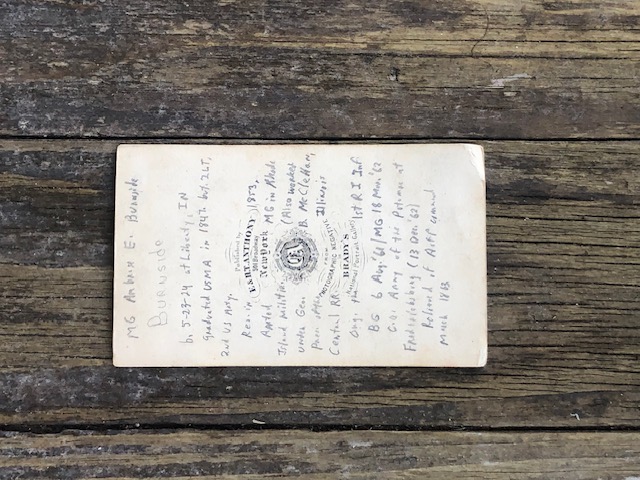 MG Ambrose E. Burnside
BURNSIDE
b. 5-23-24 at Liberty, IN
graduated USMA in 1847 bvt. 2LT,
2nd US Arty.
Published by
E. & H.T. ANTHONY
501 Broadway
New York
Res. in 1853,
Appted MG in Rhode
Island militia. (Also worked
under Gen. B. McClellan,
Illinois
Central RR
FROM
PHOTOGRAPHIC NEGATIVE
BRADY'S
National Portrait Gallery
Org. 1st R I Inf.
BG 6 Aug '61/MG 18 Mar '62
C.O. Army of the Potomac at
Fredericksburg (13 Dec. '62)
Relieved of A of P
March 1863